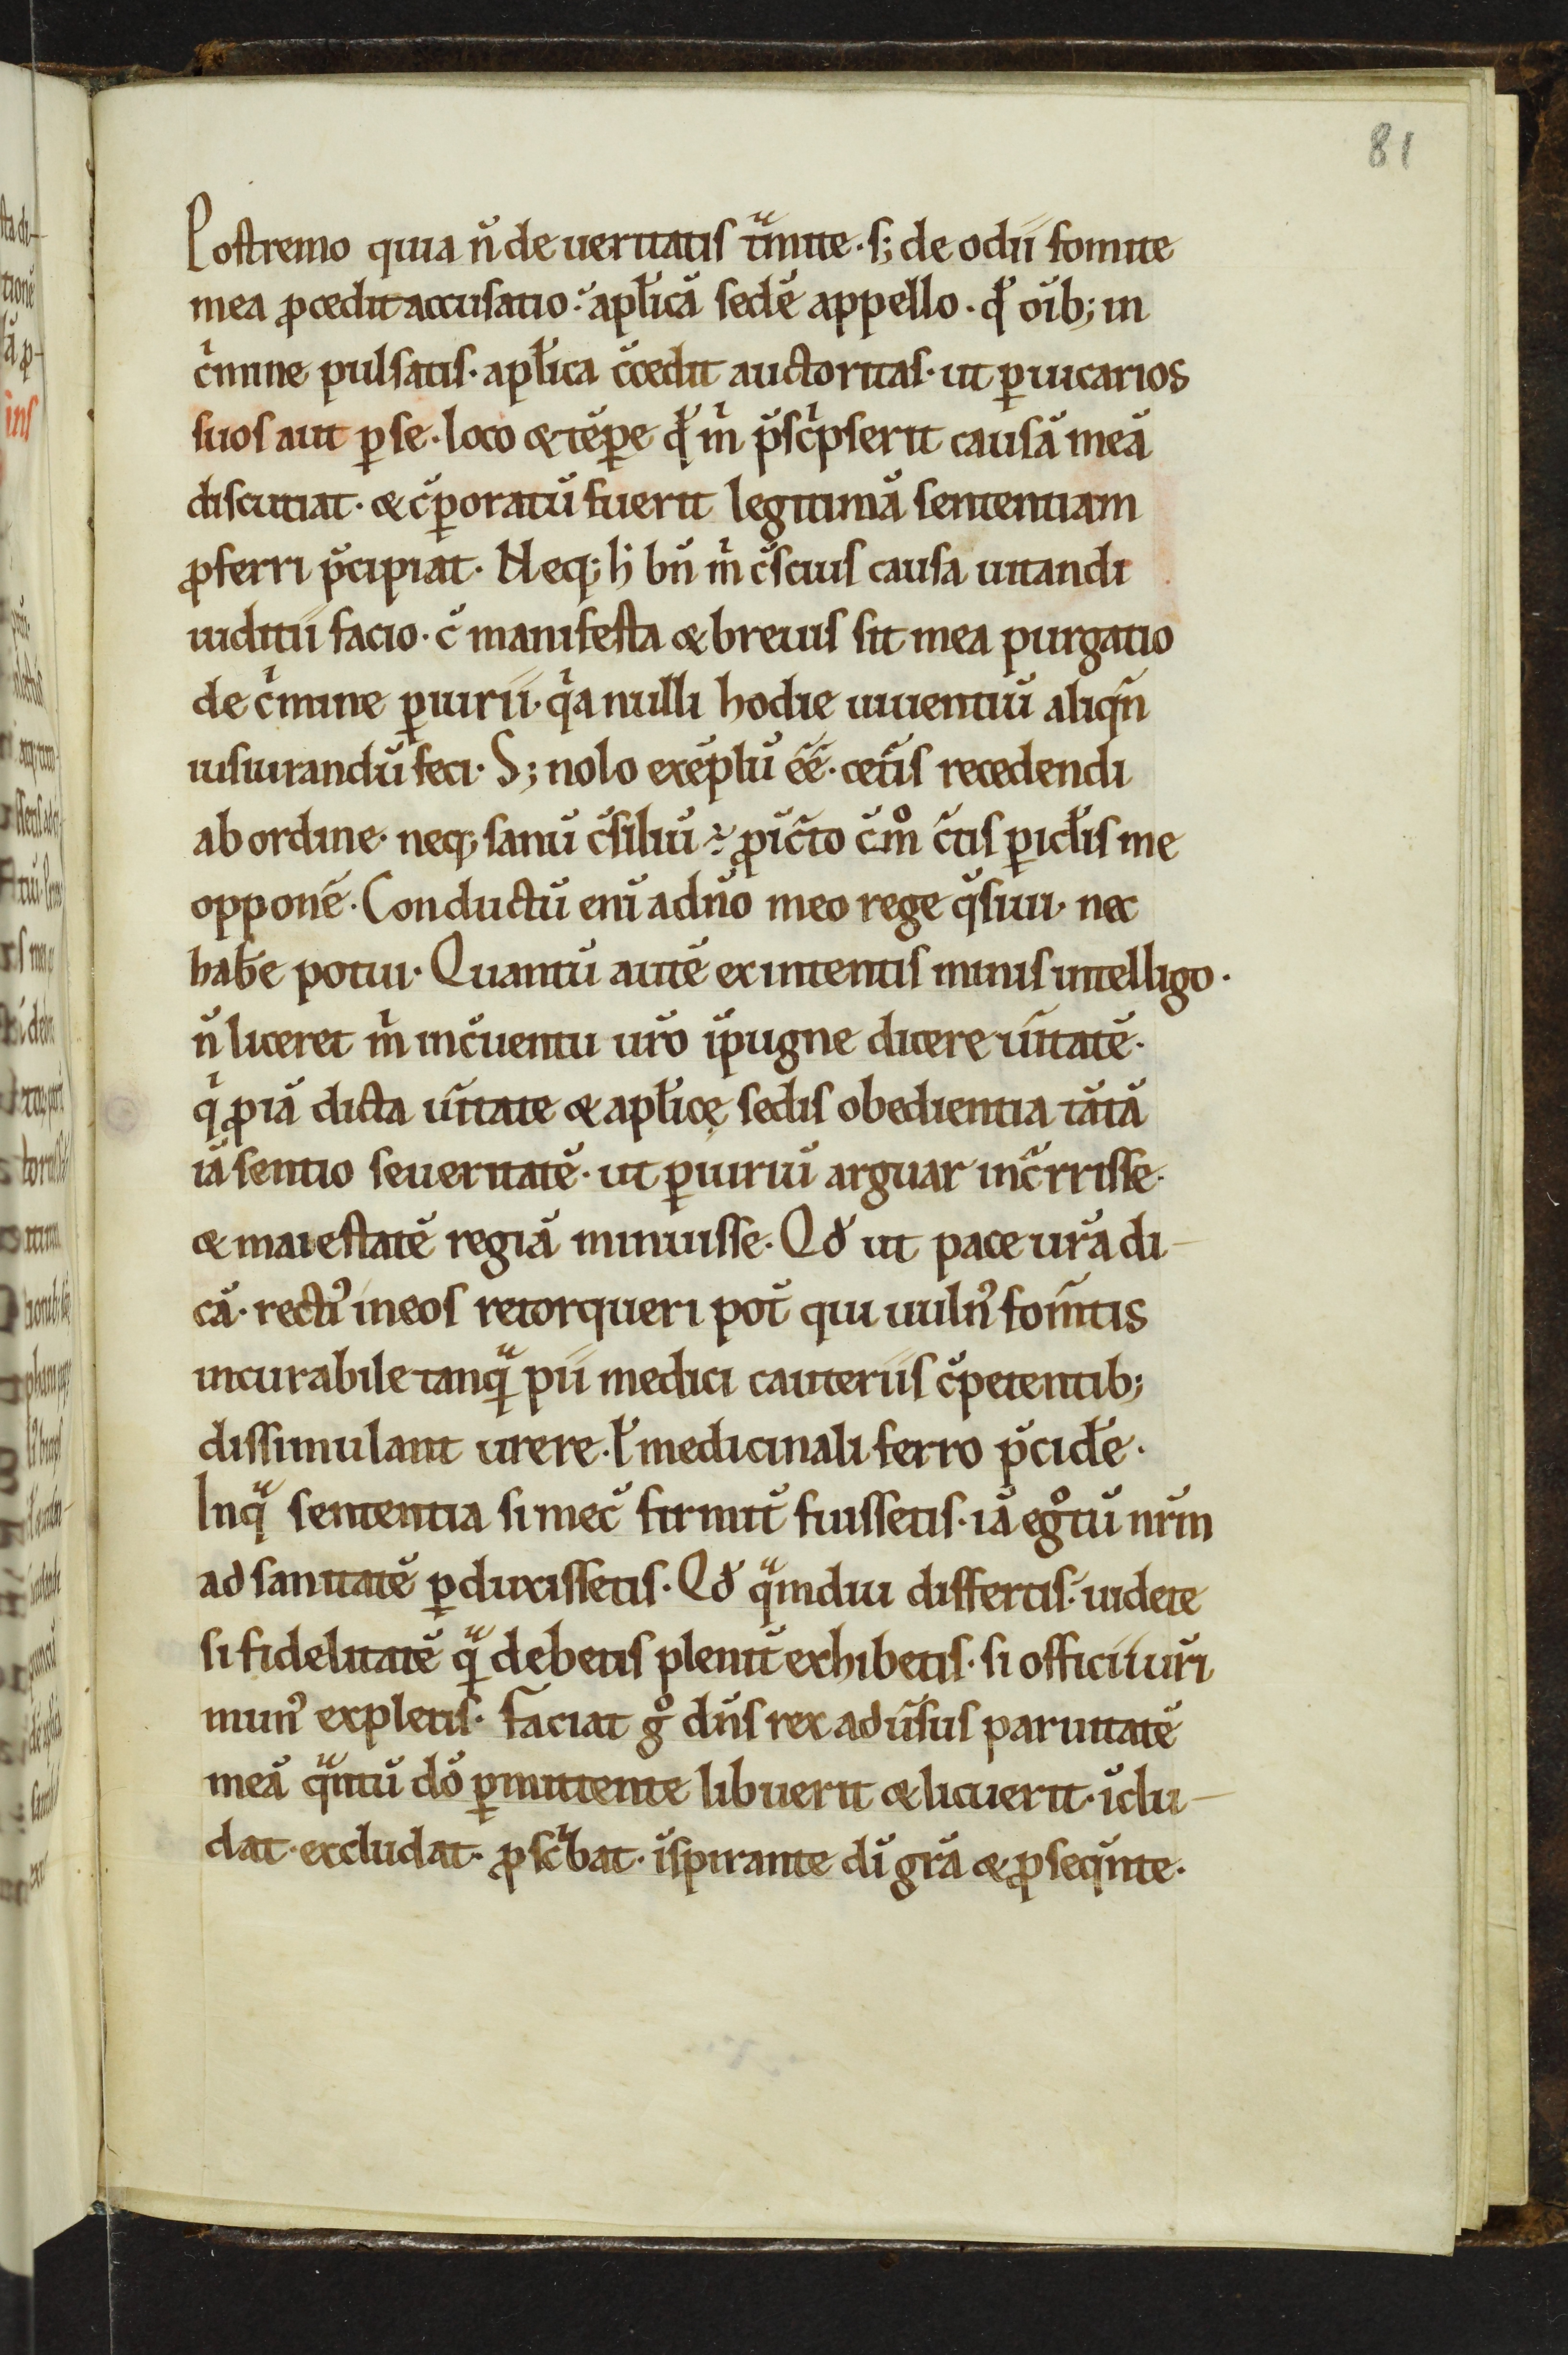 81
Postremo quia n̄ de ueritatis tᵃmite. s; de odii fomite
mea ꝓcedit accusatio. apl̄icā sedē appello. qd̄ oīb; in
cⁱmine pulsatis. apl̄ica c̄cedit auctoritas. ut ꝑ uicarios
suos aut ꝑ se. loco & tēꝑe q̄ mⁱ p̄scⁱpserit causā meā
discutiat. & c̄ꝑoratū fuerit legitimā sententiam
ꝓferri p̄cipiat. Neq; h̄ bn̄ mⁱ c̄scius causa uitandi
iuditii facio. c̄ manifesta & breuis sit mea purgatio
de cⁱmine ꝑiurii. qⁱa nulli hodie uiuentiū aliqn̄
iusiurandū feci. S; nolo exēplū ēē. cet̄is recedendi
ab ordine. neq; sanū c̄siliū ÷ ꝓic̄to c̄mᵒ c̄tis ꝑicl̄is me
opponē. Conductū enī a dn̄o meo rege q̄siui. nec
hab̄e potui. Quantū autē ex intentis minis intelligo.
n̄ liceret mⁱ in c̄uentu ur̄o īpugne dicere ūitatē.
qⁱ ꝓ iā dicta ūitate & apl̄icę sedis obedientia tātā
iā sentio seueritatē. ut ꝑiuriū arguar inc̄rrisse.
& maiestatē regiā minuisse. Qd̄ ut pace ur̄a di-
cā. recti᾽ in eos retorqueri pot̄ qui uuln᾽ fom̄tis
incurabile tanqᵃ pii medici cauteriis c̄petentib;
dissimulant urere. ł medicinali ferro p̄cid̄e.
In qᵃ sententia si mec̄ firmit̄ fuissetis. iā egᵒtū nr̄m
ad sanitatē ꝑduxissetis. Qd̄ qᵃmdiu differtis. uidete
si fidelitatē qᵃ debetis plenit̄ exhibetis. si officii ur̄i
mun᾽ expletis. Faciat gᵒ dn̄s rex adūsus paruitatē
meā qᵃntū dō ꝑmittente libuerit & licuerit. īclu-
dat. excludat. ꝓscⁱbat. īspirante dī gr̄a & ꝓseq̄nte.